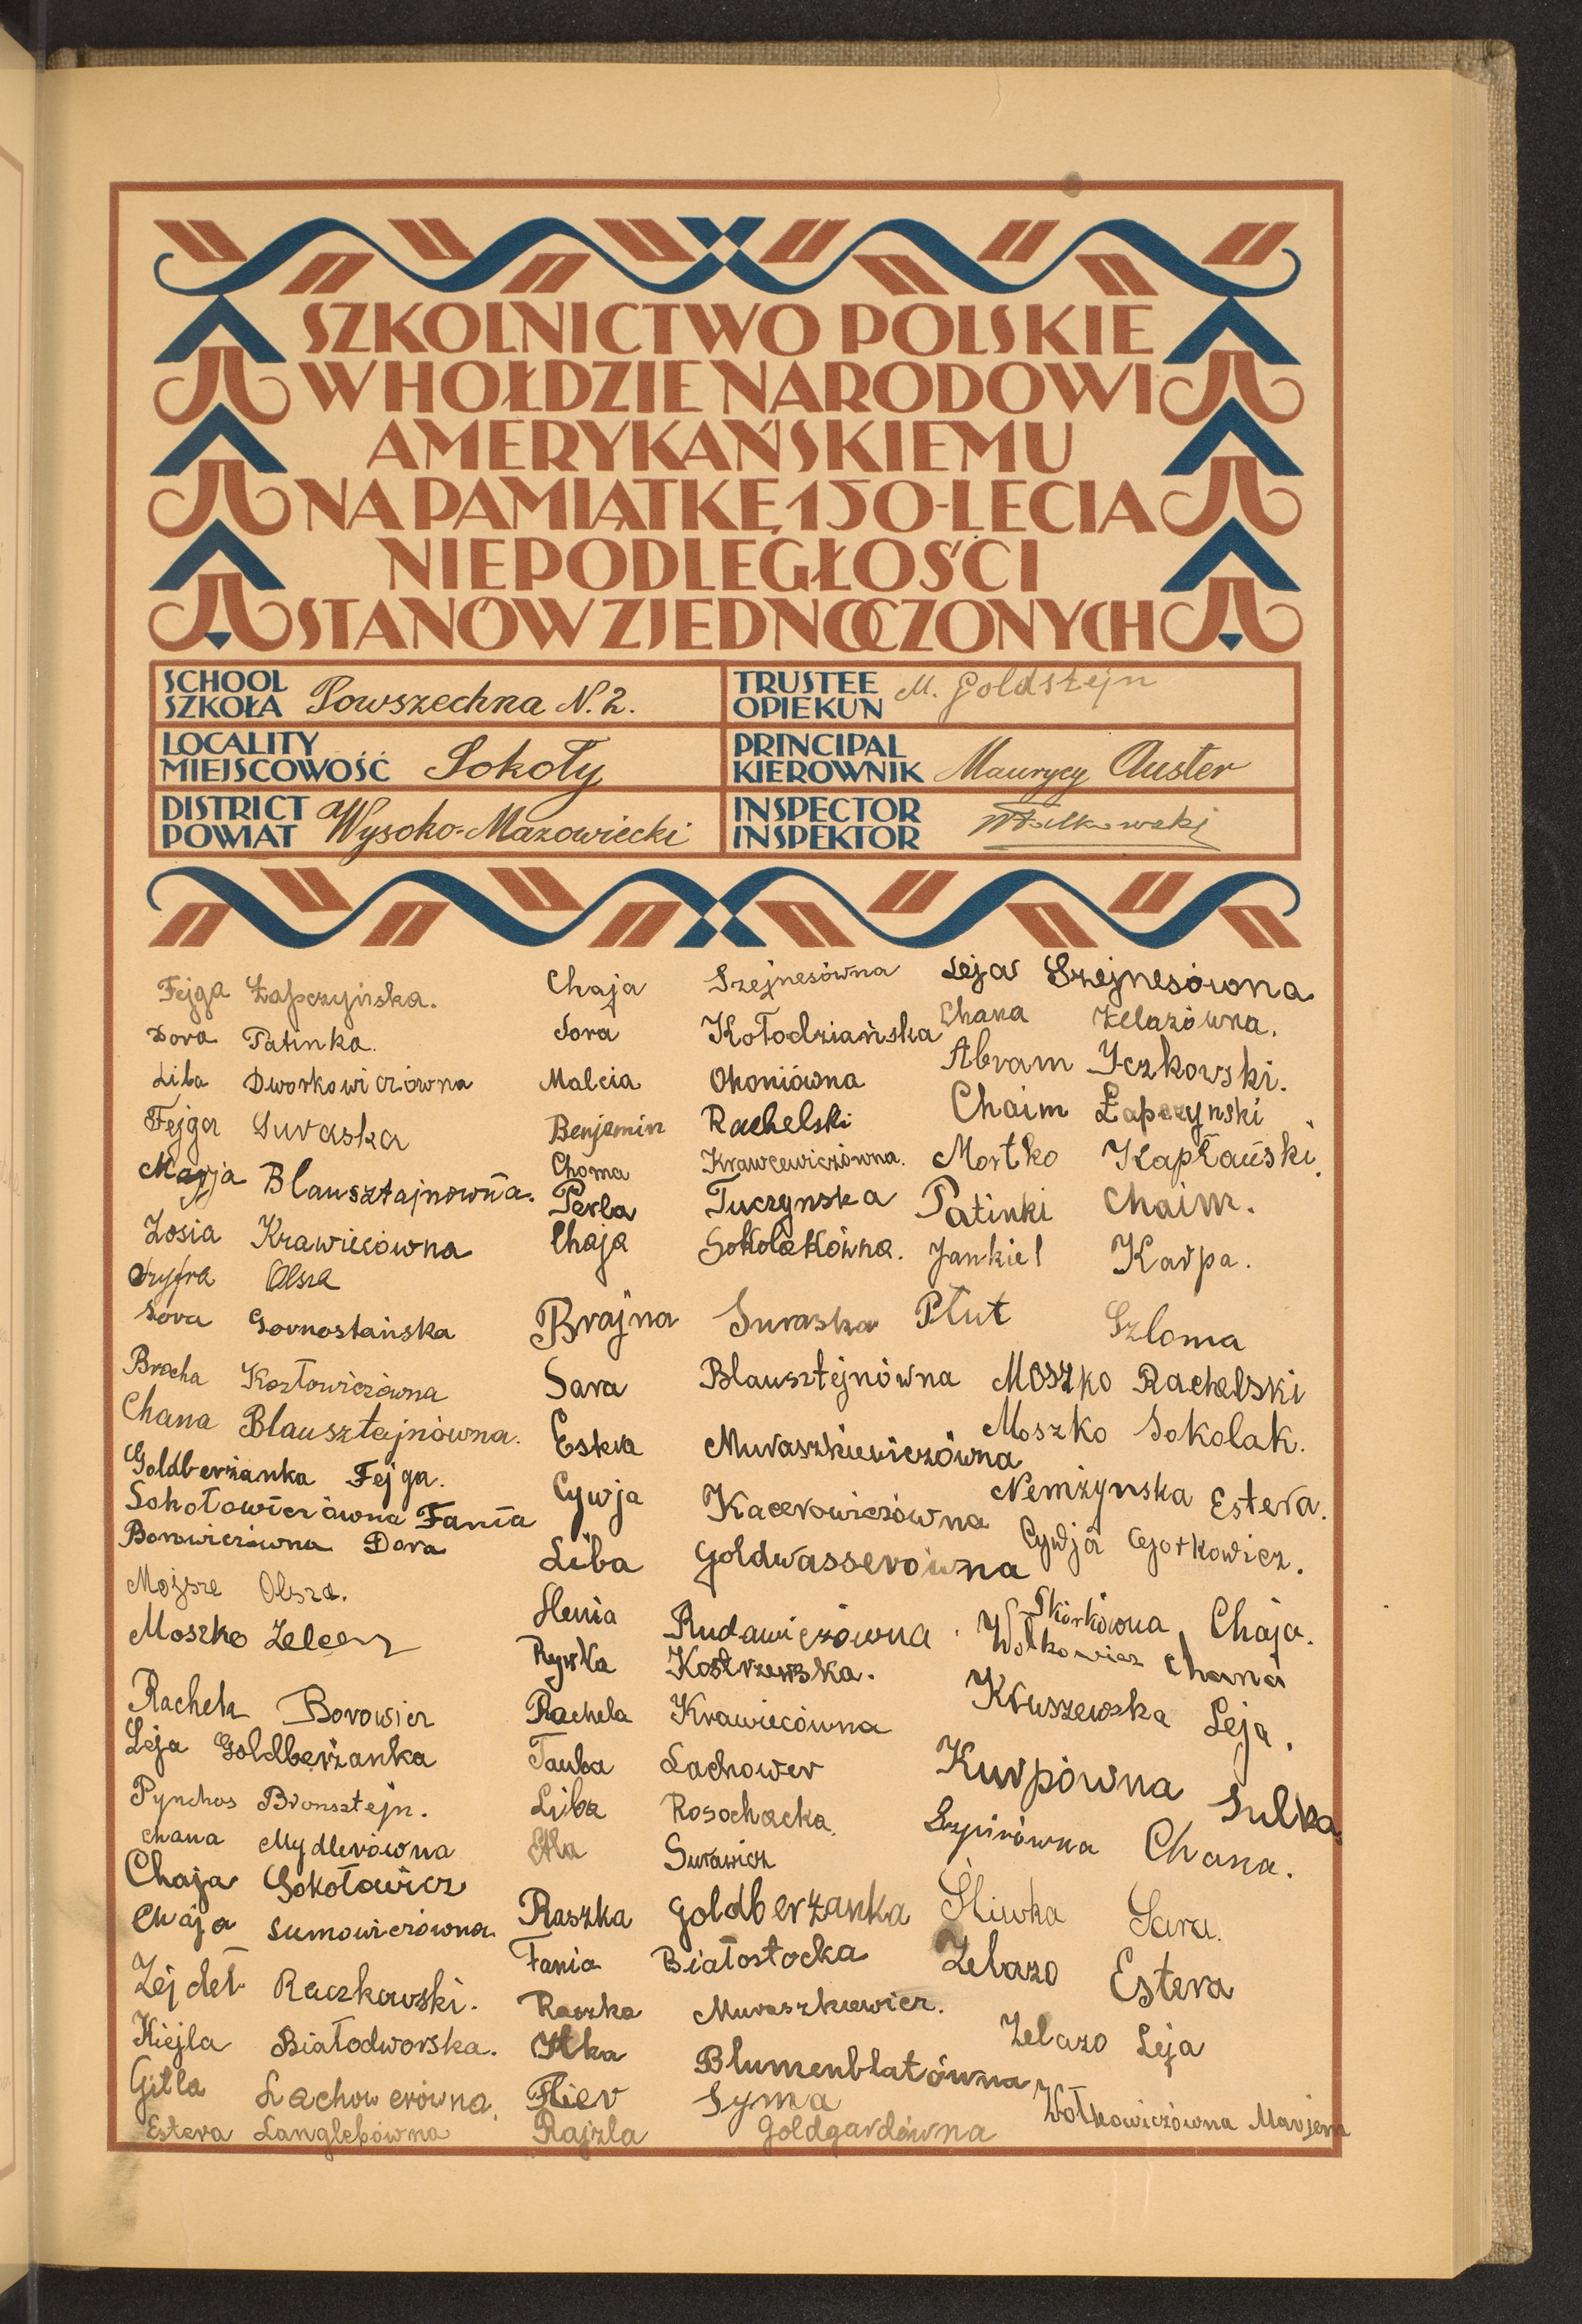 SZKOLNICTWO POLSKIE
W HOŁDZIE NARODOWI
AMERYKAŃSKIEMU
NA PAMIĄTKĘ 150-LECIA
NIEPODLEGŁOŚCI
STANÓW ZJEDNOCZONYCH
SCHOOL
SZKOŁA Powszechna N. 2.
TRUSTEE
OPIEKUN M. Goldsztejn
LOCALITY
MIEJSCOWOŚĆ Sokoły
PRINCIPAL
KIEROWNIK Maurycy Auster
DISTRICT
POWIAT Wysoko-Mazowiecki
INSPECTOR
INSPEKTOR
Fejga Łapczyńska.
Dora Patinka.
Liba Dworkowiczówna
Fejga Suraska
Marja Blausztajnowna.
Zosia Krawiecówna
Szyfra Olsza
Sora Gornostańska
Brocha Kozłowiczówna
Chana Blausztajnówna.
Goldberżanka Fejga.
Sokołowiczówna Fania
Borowiczówna Dora
Mojsze Olsza.
Moszko
Rachela Borowicz
Leja Goldberżanka
Pynchos Bronsztejn.
Chana Mydlerówna
Chaja Sokołowicz
Chaja Sumowiczówna
Zejdel Raczkowski.
Kiejla Białodworska.
Gitla Lachowerówna.
Estera Langlebówna
Chaja Szejnesówna
Sora Kołodziańska
Malcia Okoniówna
Benjamin Rachelski
Choma Krawcewiczówna.
Perla Tuczynska
Chaja Sokolakówna.
Brajna Suraska
Sara Blausztejnówna
Estera Muraszkiewiczówna
Cywja Kacerowiczówna
Liba Goldwasserówna
Henia Rudawiczówna.
Rywka Kostrzewska.
Rachela Krawiecówna
Tauba Lachower
Liba Rosochacka.
Etla Surawicz
Raszka Goldberżanka
Fania Białostocka
Raszka Muraszkiewicz.
Itka Blumenblatówna
Flier Syma
Rajzla Goldgardówna
Leja Szejnesówna
Chana Żelazówna.
Abram Iczkowski.
Chaim Łapczynski
Mortko Kapłański.
Patinki Chaim.
Jankiel Karpa.
Płut Szloma
Moszko Rachelski
Moszko Sokolak.
Nemżynska Estera.
Cywja
Skórkówna Chaja.
Wołkowicz Chana
Kruszewska Leja.
Kurpówna Sulka.
Szpirówna Chana.
Śliwka Sara.
Żelazo Estera
Żelazo Leja
Wołkowiczówna Marjem